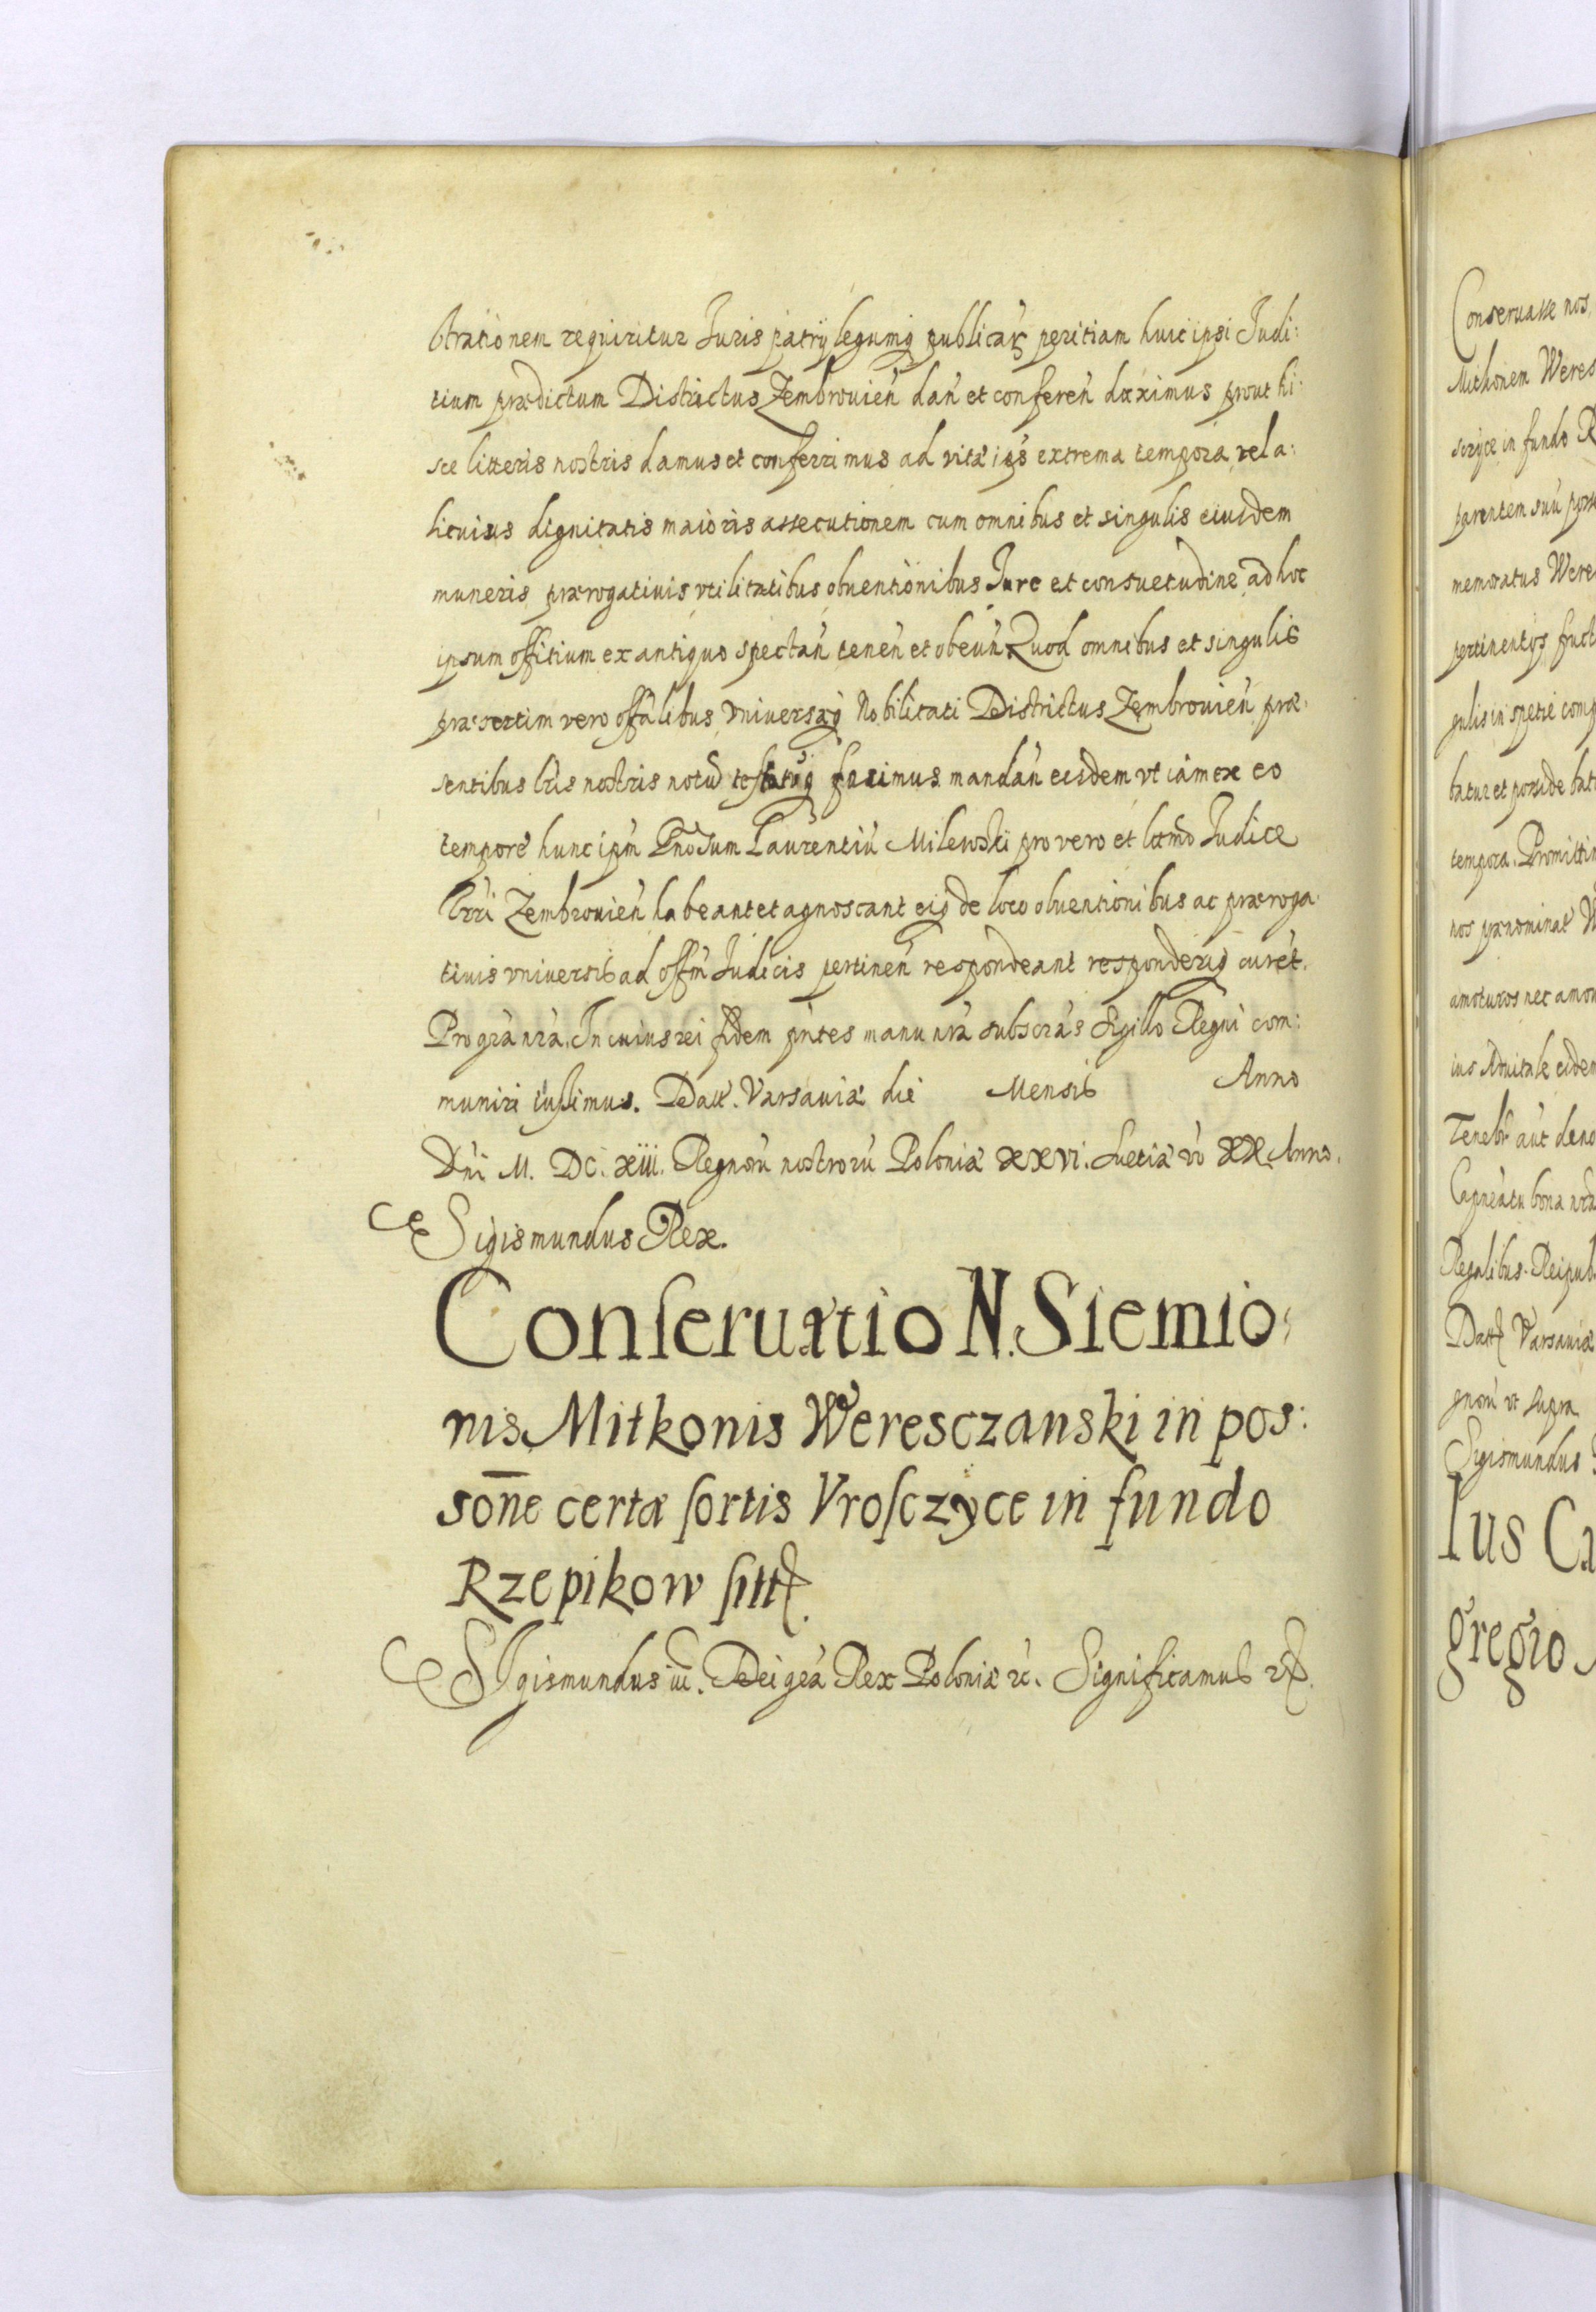 strationem requiritur Iuris patrij legumq publicar peritiam huic ipsi Iudi:
tium prædictum Districtus Zembrouien̄ dan̄ et conferen̄ duximus prout hi:
sce litteris nostris damus et conferrimus ad vitæ ip̄s extrema tempora vel a:
licuius dignitatis maioris assecutionem cum omnibus et singulis eiusdem
muneris prærogatiuis vtilitatibus obuentionibus Iure et consuetudine ad hoc
ipsum offitium ex antiquo spectan̄ tenen̄ et obeun̄ Quod omnibus et singulis
præsertim vero offālibus Vniversæq Nobilitati Districtus Zembrouien̄ præ:
sentibus lr̄is nostris notū testatūq facimus mandan̄ eisdem vt iam ex eo
tempore hunc ipm̄ Gn̄osum Laurentiū Milewski pro vero et ltm̄o Iudice
tr̄ri Zembrouien̄ habeant et agnoscant eiq de loco obuentionibus ac præroga:
tiuis vniuersis ad offm̄ Iudicis pertinen̄ respondeant responderiq curet.
Pro gr̄a nr̄a. In cuius rei fidem pn̄tes manu nr̄a subscr̄as Sigillo Regni com:
muniri iussimus. Datt. Varsauiæ die Mensis Anno
Dn̄i M. DC. XIII. Regnorū nostrorū Poloniæ XXVI. Suetiæ vō XX. Anno.
Sigismundus Rex.
Conseruatio N. Siemio:
nis Mitkonis Weresczanski in pos:
son̄e certæ sortis Vrosczyce in fundo
Rzepikow sitt.
Sigismundus iii. Dei gr̄a Rex Poloniæ etc. Significamus etc.
Conseruasse nos,
Mitkonem Weres
sczyce in fundo R
parentem suū poss
memoratus Were
pertinentijs fruct
gulis in spetie comp
batur et posside bat
tempora. Promittim
nos prænominat W
amoturos nec amou
ius Aduitale eidem
Tenebr aut deno
Capneatu bona nr̄a
Regalibus. Reipub.
Datt Varsauiæ
gnorū vt supra
Sigismundus
Ius Ca
gregio